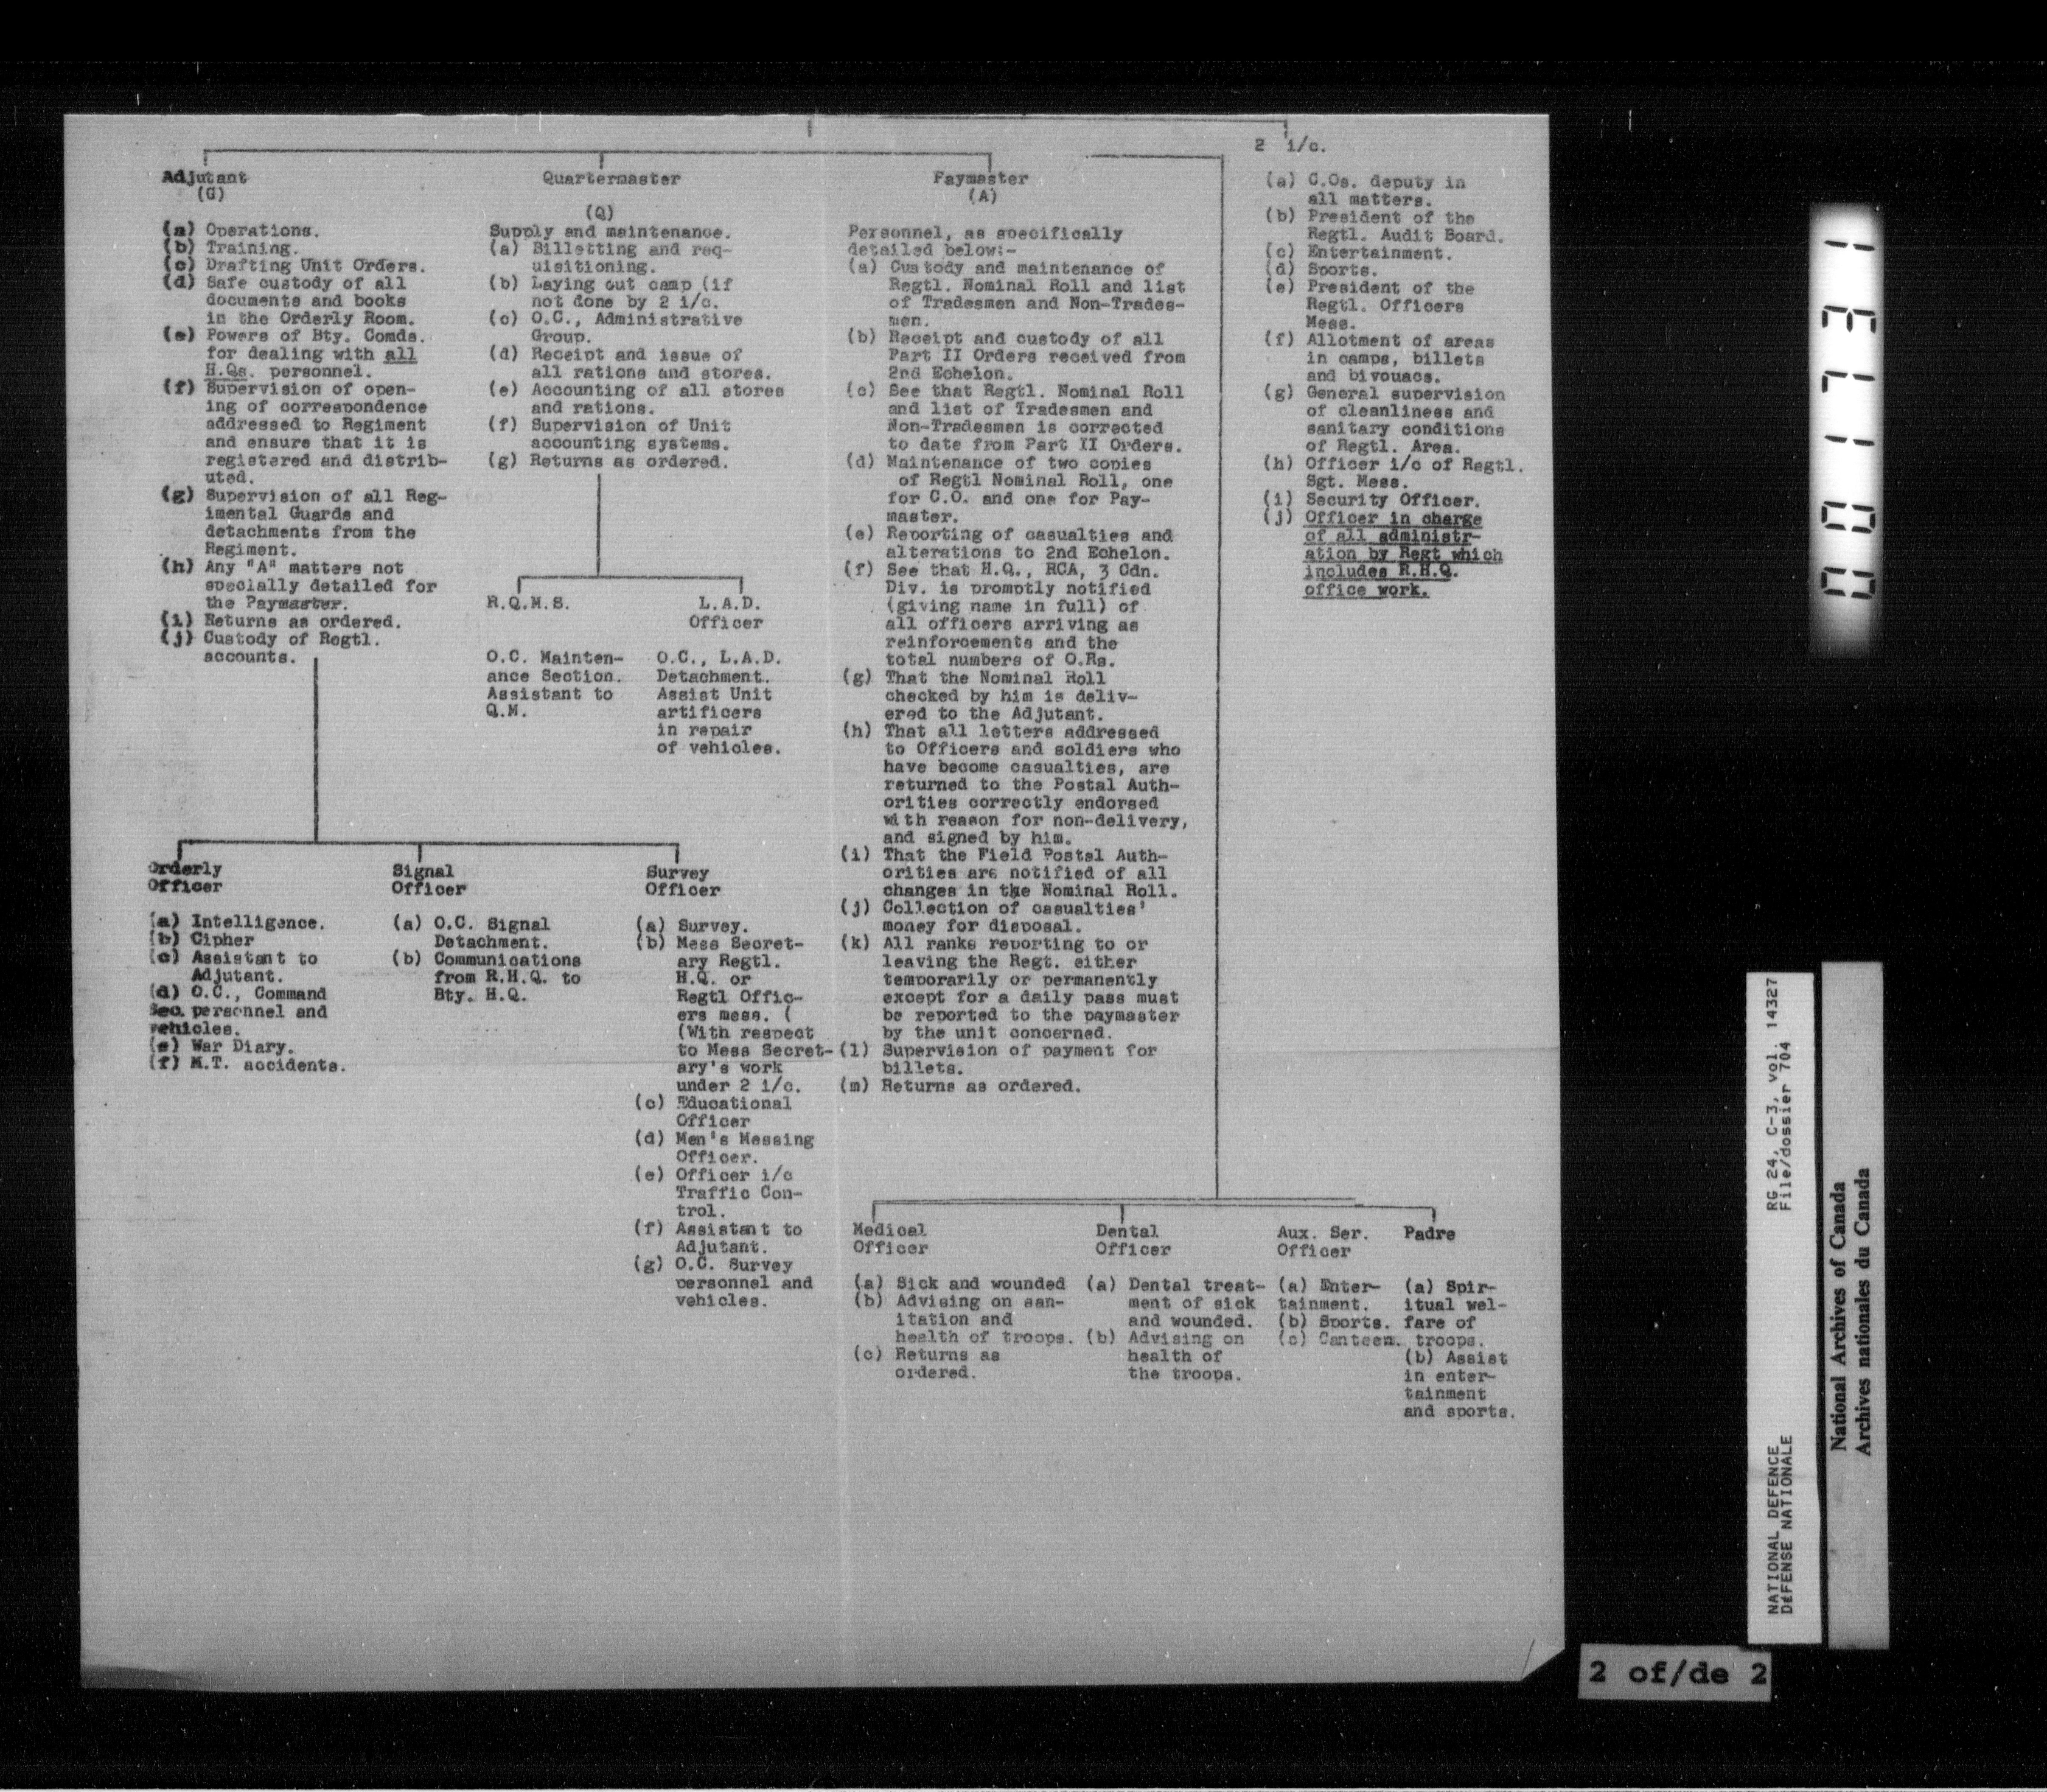 2 i/c.
Adjutant
(G)
(a) Operations.
(b) Training.
(c) Drafting Unit Orders.
(d) Safe custody of all
documents and books
in the Orderly Room.
(e) Powers of Bty. Comds.
for dealing with all
H.Qs. personnel.
(f) Supervision of open-
ing of correspondence
addressed to Regiment
and ensure that it is
registered and distrib-
uted.
(g) Supervision of all Reg-
imental Guards and
detachments from the
Regiment.
(h) Any "A" matters not
specially detailed for
the Paymaster.
(i) Returns as ordered.
(j) Custody of Regtl.
accounts.
Quartermaster
(Q)
Supply and maintenance.
(a) Billetting and req-
uisitioning.
(b) Laying out camp (if
not done by 2 i/c.
(c) O.C., Administrative
Group.
(d) Receipt and issue of
all rations and stores.
(e) Accounting of all stores
and rations.
(f) Supervision of Unit
accounting systems.
(g) Returns as ordered.
R.Q.M.S.
O.C. Mainten-
ance Section.
Assistant to
Q.M.
L.A.D.
Officer
O.C., L.A.D.
Detachment.
Assist Unit
artificers
in repair
of vehicles.
Paymaster
(A)
Personnel, as specifically
detailed below:-
(a) Custody and maintenance of
Regtl. Nominal Roll and list
of Tradesmen and Non-Trades-
men.
(b) Receipt and custody of all
Part II Orders received from
2nd Echelon.
(c) See that Regtl. Nominal Roll
and list of Tradesmen and
Non-Tradesmen is corrected
to date from Part II Orders.
(d) Maintenance of two copies
of Regtl Nominal Roll, one
for C.O. and one for Pay-
master.
(e) Reporting of casualties and
alterations to 2nd Echelon.
(f) See that H.Q., RCA, 3 Cdn.
Div. is promptly notified
(giving name in full) of
all officers arriving as
reinforcements and the
total numbers of O.Rs.
(g) That the Nominal Roll
checked by him is deliv-
ered to the Adjutant.
(h) That all letters addressed
to Officers and soldiers who
have become casualties, are
returned to the Postal Auth-
orities correctly endorsed
with reason for non-delivery,
and signed by him.
(i) That the Field Postal Auth-
orities are notified of all
changes in the Nominal Roll.
(j) Collection of casualties'
money for disposal.
(k) All ranks reporting to or
leaving the Regt. either
temporarily or permanently
except for a daily pass must
be reported to the paymaster
by the unit concerned.
(l) Supervision of payment for
billets.
(m) Returns as ordered.
(a) C.Os. deputy in
all matters.
(b) President of the
Regtl. Audit Board.
(c) Entertainment.
(d) Sports.
(e) President of the
Regtl. Officers
Mess.
(f) Allotment of areas
in camps, billets
and bivouacs.
(g) General supervision
of cleanliness and
sanitary conditions
of Regtl. Area.
(h) Officer i/c of Regtl.
Sgt. Mess.
(i) Security Officer.
(j) Officer in charge
of all administr-
ation by Regt which
includes R.H.Q.
office work.
Orderly
Officer
(a) Intelligence.
(b) Cipher
(c) Assistant to
Adjutant.
(d) O.C., Command
Sec. personnel and
vehicles.
(e) War Diary.
(f) M.T. accidents.
Signal
Officer
(a) O.C. Signal
Detachment.
(b) Communications
from R.H.Q. to
Bty. H.Q.
Survey
Officer
(a) Survey.
(b) Mess Secret-
ary Regtl.
H.Q. or
Regtl Offic-
ers mess. (
(With respect
to Mess Secret-
ary's work
under 2 i/c.
(c) Educational
Officer
(d) Men's Messing
Officer.
(e) Officer i/c
Traffic Con-
trol.
(f) Assistant to
Adjutant.
(g) O.C. Survey
personnel and
vehicles.
Medical
Officer
(a) Sick and wounded
(b) Advising on san-
itation and
health of troops.
(c) Returns as
ordered.
Dental
Officer
(a) Dental treat-
ment of sick
and wounded.
(b) Advising on
health of
the troops.
Aux. Ser.
Officer
(a) Enter-
tainment.
(b) Sports.
(c) Canteen.
Padre
(a) Spir-
itual wel-
fare of
troops.
(b) Assist
in enter-
tainment
and sports.
NATIONAL DEFENCE RG 24, C-3, vol. 14327
DÉFENSE NATIONALE File/dossier 704
National Archives of Canada
Archives nationales du Canada
2 of/de 2